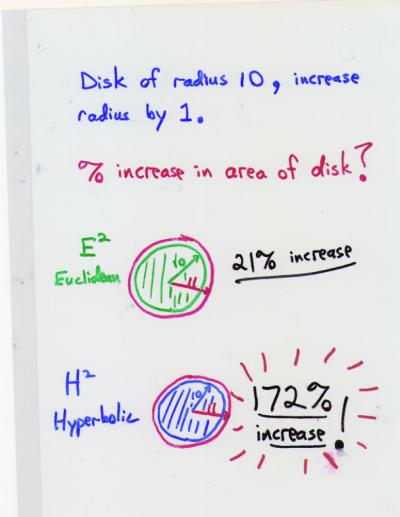 Disk of radius 10, increase
radius by 1.
% increase in area of disk?
E²
Euclidean
10
11
21% increase
H²
Hyperbolic
10
11
172%
increase!